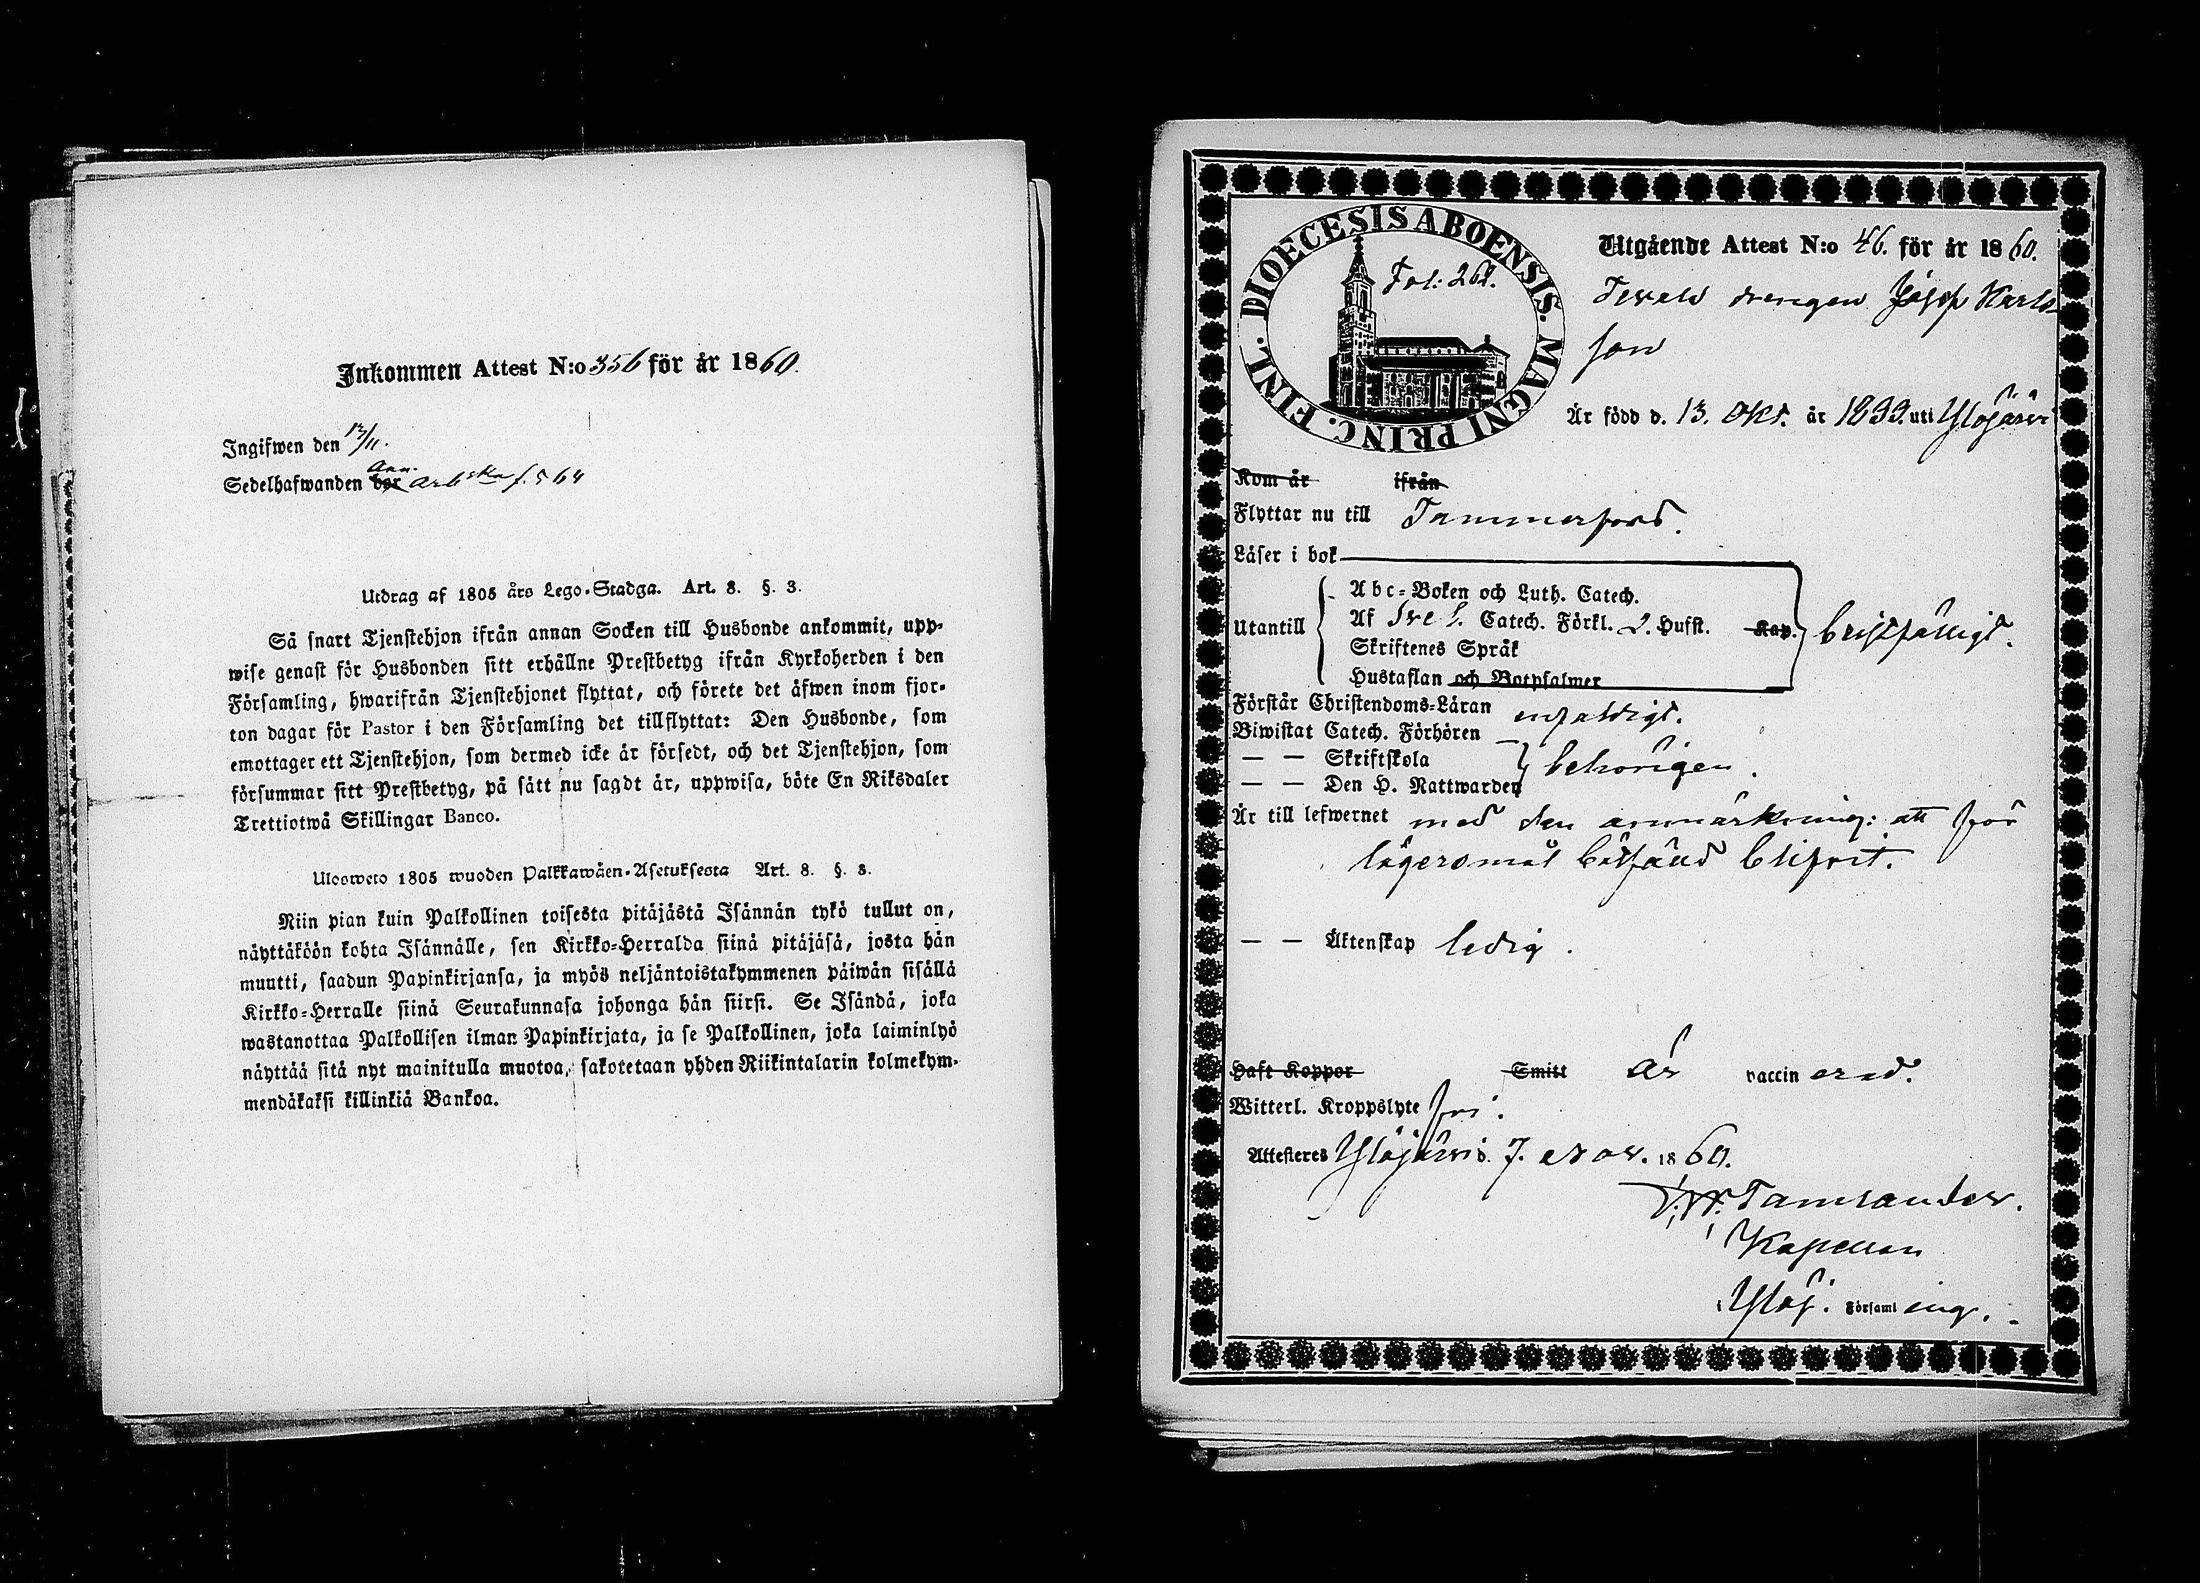 Inkommen Attest N:o 356 för år 1860.
Ingifwen den 13/11.
Ann.
Sedelhafwanden bor arb ska f. 564
Utdrag af 1805 års Lego-Stadga. Art. 8. §. 3.
Så snart Tjenstehjon ifrån annan Socken till Husbonde ankommit, upp-
wise genast för Husbonden sitt erhållne Prestbetyg ifrån Kyrkoherden i den
Församling, hwarifrån Tjenstehjonet flyttat, och förete det äfwen inom fjor-
ton dagar för Pastor i den Församling det tillflyttat: Den Husbonde, som
emottager ett Tjenstehjon, som dermed icke är försedt, och det Tjenstehjon, som
försummar sitt Prestbetyg, på sätt nu sagdt är, uppwisa, böte En Riksdaler
Trettiotwå Skillingar Banco.
Ulosweto 1805 wuoden Palkkawäen-Asetuksesta Art. 8. §. 3.
Niin pian kuin Palkollinen toisesta pitäjästä Isännän tykö tullut on,
näyttäköön kohta Isännälle, sen Kirkko-Herralda siinä pitäjäsä, josta hän
muutti, saadun Papinkirjansa, ja myös neljäntoistakymmenen päiwän sisällä
Kirkko-Herralle siinä Seurakunnasa johonga hän siirsi. Se Isändä, joka
wastanottaa Palkollisen ilman Papinkirjata, ja se Palkollinen, joka laiminlyö
näyttää sitä nyt mainitulla muotoa, sakotetaan yhden Riikintalarin kolmekym-
mendäkaksi killinkiä Bankoa.
DIOECESIS ABOENSIS. MAGNI PRINC. FINL.
Fol: 262.
Utgående Attest N:o 46. för år 1860.
drengen Josef Karls-
son
Är född d. 13. Okt. år 1839. uti Ylöjärvi
Kom år ifrån
Flyttar nu till Tammerfors.
Läser i bok
Abc-Boken och Luth. Catech.
Utantill Af Sve l. Catech. Förkl. 2. Hufst. Kap. bristfälligt.
Skriftenes Språk
Hustaflan och Botpsalmer
Förstår Christendoms-Läran enfaldigt.
Biwistat Catech. Förhören
— — Skriftskola behörigen.
— — Den H. Nattwarden
Är till lefwernet med den anmärkning: att för
lägersmål bötfäld blifvit.
— — Äktenskap ledig.
Haft Koppor Smitt är vaccinerad.
Witterl. Kroppslyte fri.
Attesteres Ylöjärvi d. 7. Nov. 1860.
Tamlander.
Kapellan
i Ylöj. Församling.